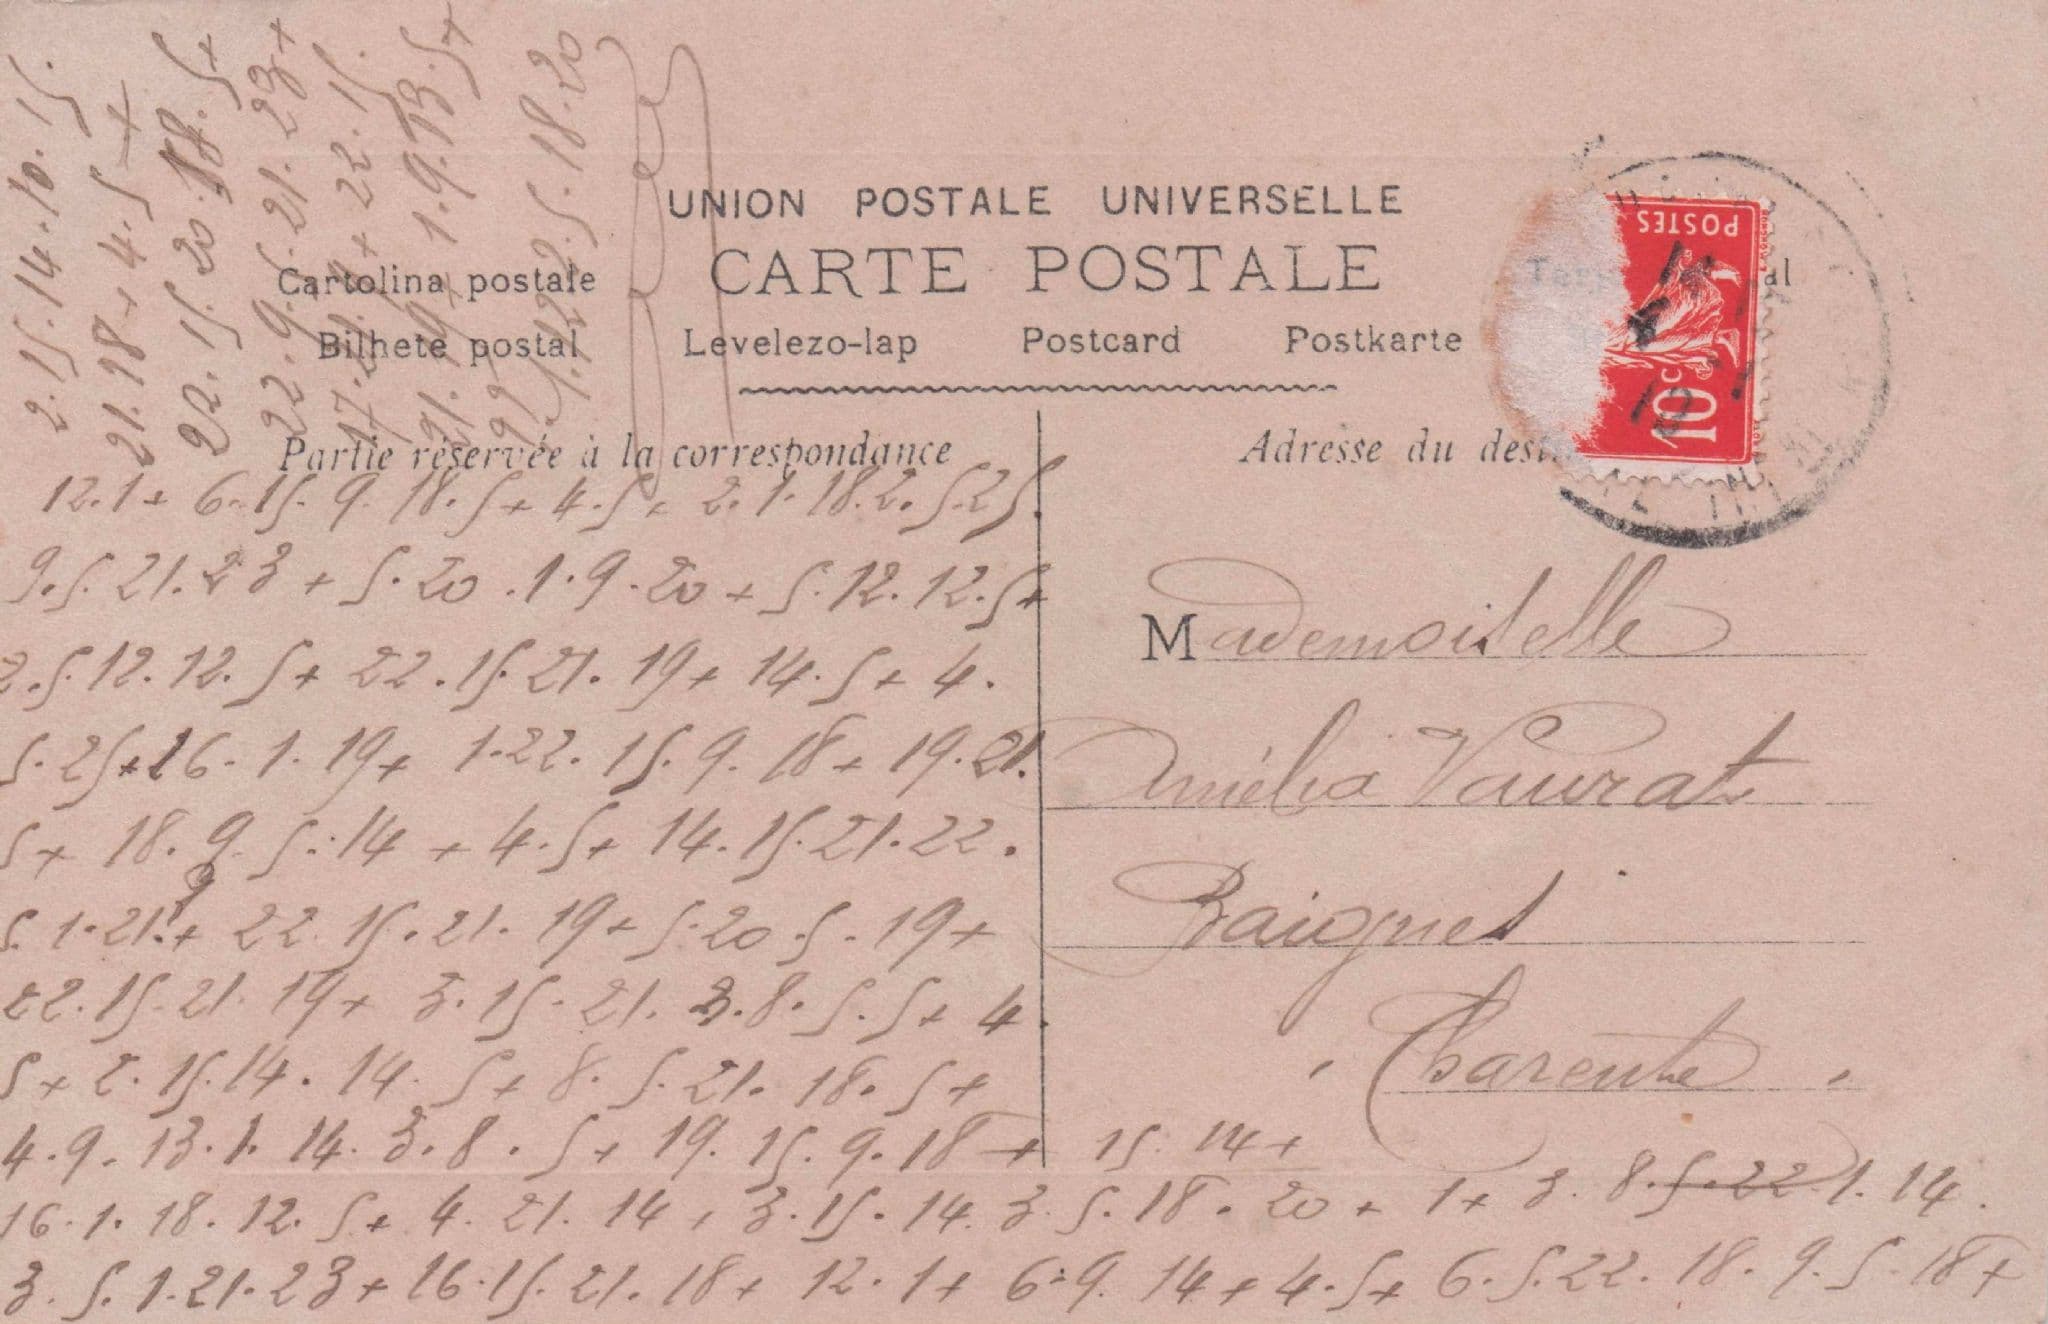 UNION POSTALE UNIVERSELLE
CARTE POSTALE
Cartolina postale
Bilhete postal Levelezo-lap Postcard Postkarte
POSTES
10 c
Partie réservée à la correspondance
Adresse du
12.1+ 6.15.9.18.5+ 4.5+ 2.1.18.2.5.25.
9.5.21.23 + 5.20.1.9.20 + 5.12.12.5+
2.5.12.12.5+ 22.15.21.19+ 14.5+ 4.
5.25+16.1.19+ 1.22.15.9.18+ 19.21.
5+ 18.9.5.14 + 4.5+ 14.15.21.22.
5.1.21.+ 22.15.21.19+ 5.20.5.19+
22.15.21.19+ 3.15.21.3.8.5.5+ 4.
5+ 2.15.14.14.5+ 8.5.21.18.5+
4.9.13.1.14.3.8.5+ 19.15.9.18+ 15.14+
16.1.18.12.5+ 4.21.14+ 3.15.14.3.5.18.20+ 1+ 3.8.5.22.1.14.
3.5.1.21.23+16.15.21.18+ 12.1+ 6.9.14+4.5+ 6.5.22.18.9.5.18+
2.15.14.10.15.
21.18+4.5+
22.15.20.18.5+
22.9.5.21.23+
17.21.9+22.15.
21.19+ 1.9.13.5+
1.12.2.5.18.20
Mademoiselle
Amélia Vaurat
Baignes
Charente